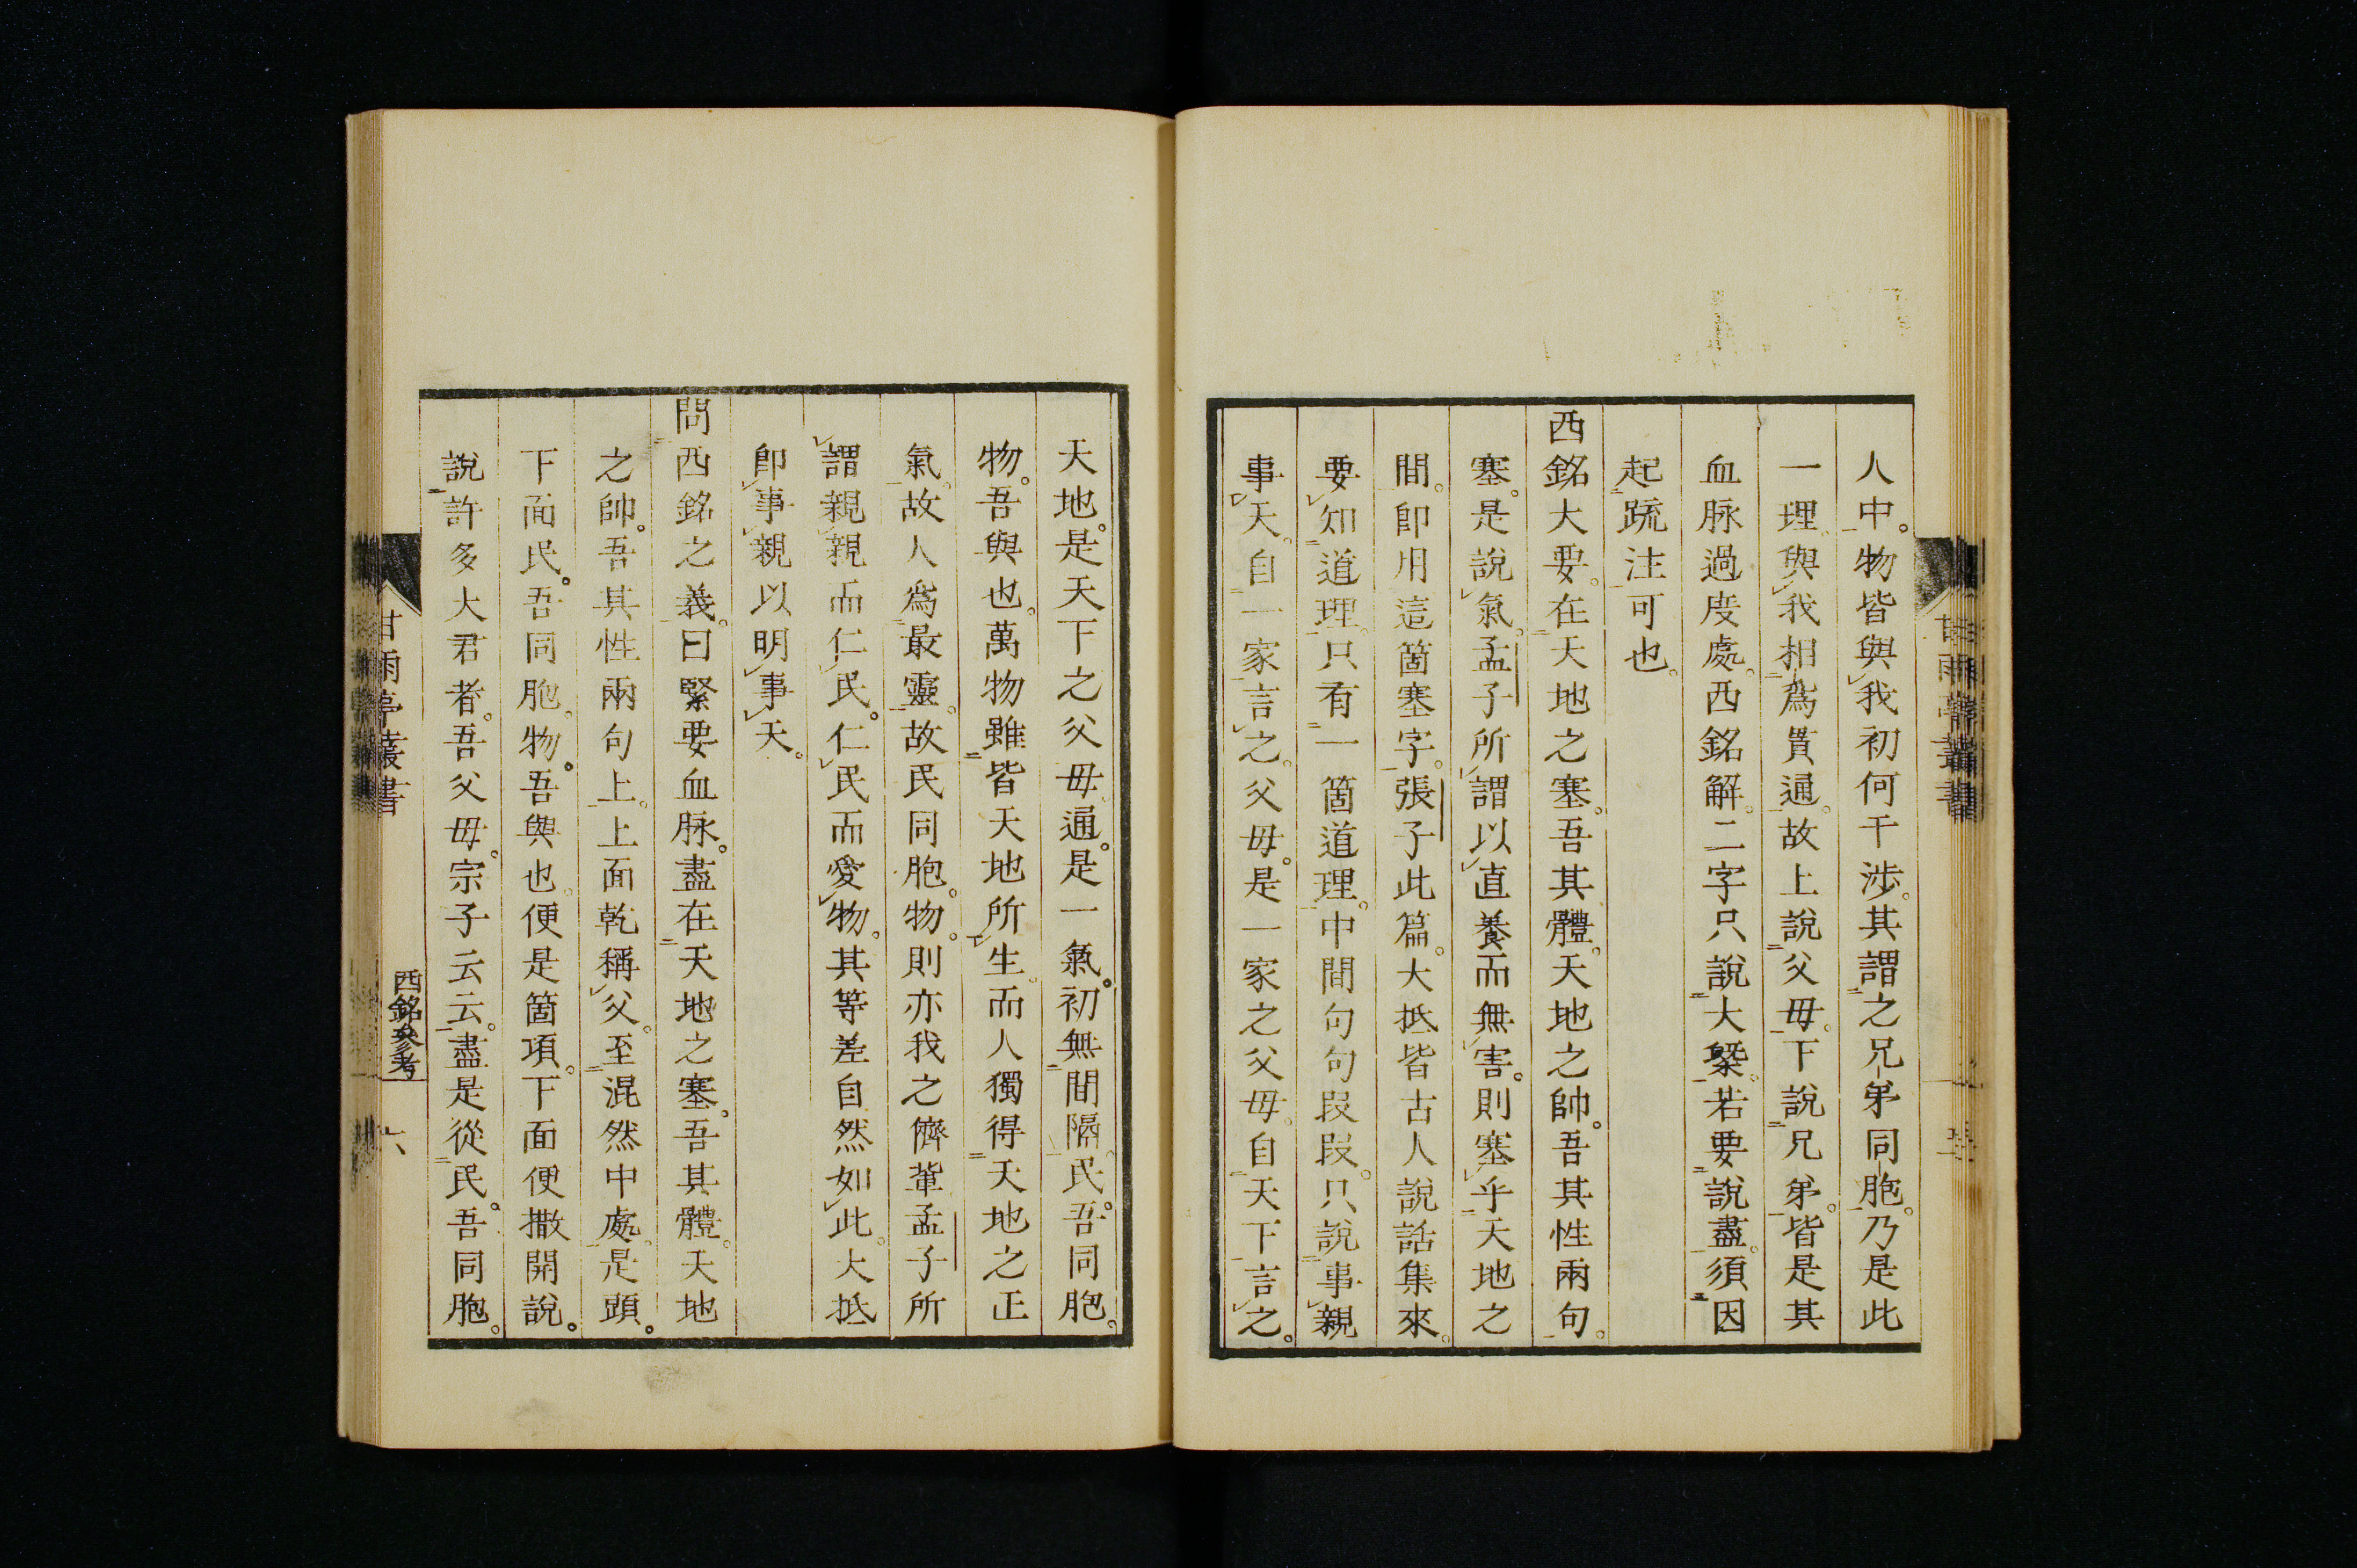 人中。物皆與我初何干涉。其謂之兄弟同胞。乃是此
一理與我相爲貫通。故上說父母。下說兄弟。皆是其
血脉過度處。西銘解。二字只說大槩。若要說盡。須因
起疏注可也。
西銘大要。在天地之塞。吾其體。天地之帥。吾其性兩句。
塞。是說氣。孟子所謂以直養而無害。則塞乎天地之
間。卽用這箇塞字。張子此篇。大抵皆古人說話集來。
要知道理。只有一箇道理。中間句句段段。只說事親
事天。自一家言之。父母。是一家之父母。自天下言之。
天地。是天下之父母。通。是一氣。初無間隔。民。吾同胞。
物。吾與也。萬物雖皆天地所生。而人獨得天地之正
氣。故人爲最靈。故民同胞。物。則亦我之儕輩。孟子所
謂親親而仁民。仁民而愛物。其等差自然如此。大抵
卽事親以明事天。
問西銘之義。曰緊要血脉。盡在天地之塞。吾其體。天地
之帥。吾其性兩句上。上面乾稱父。至混然中處。是頭。
下面民。吾同胞。物。吾與也。便是箇項。下面便撒開說。
說許多大君者。吾父母。宗子云云。盡是從民。吾同胞。
甘雨亭叢書
西銘參考
六